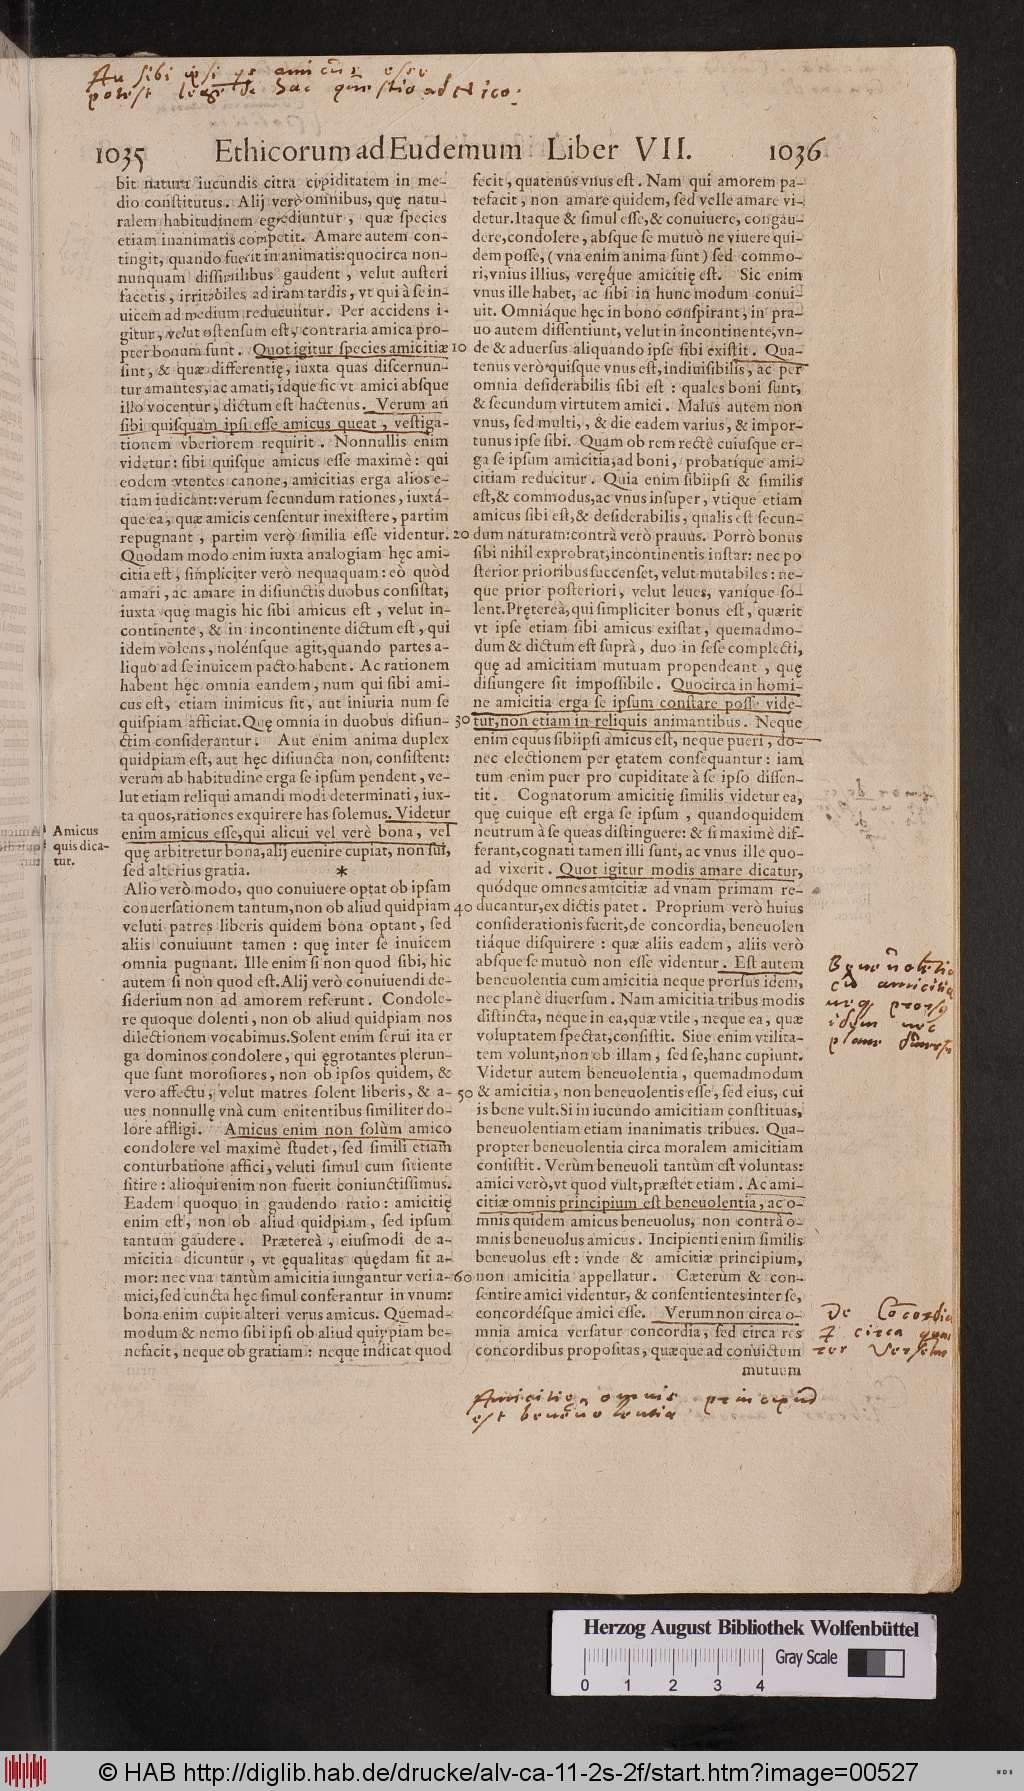 An sibi ipsi quis amicus esse
potest lege de hac questio ad Nico:
1035 Ethicorum ad Eudemum Liber VII. 1036
bit natura iucundis citra cupiditatem in me-
dio conſtitutus. Alij verò omnibus, quę natu-
ralem habitudinem egrediuntur, quæ ſpecies
etiam inanimatis competit. Amare autem con-
tingit, quando fuerit in animatis: quocirca non-
nunquam diſſimilibus gaudent, velut auſteri
facetis, irritabiles ad iram tardis, vt qui à ſe in-
uicem ad medium reducuntur. Per accidens i-
gitur, velut oſtenſum eſt, contraria amica pro-
pter bonum ſunt. Quot igitur ſpecies amicitiæ
ſint, & quæ differentię, iuxta quas diſcernun-
tur amantes, ac amati, idque ſic vt amici abſque
illo vocentur, dictum eſt hactenus. Verum an
ſibi quiſquam ipſi eſſe amicus queat, veſtiga-
tionem vberiorem requirit. Nonnullis enim
videtur: ſibi quiſque amicus eſſe maximè: qui
eodem vtentes canone, amicitias erga alios e-
tiam iudicant: verum ſecundum rationes, iuxtá-
que ea, quæ amicis cenſentur inexiſtere, partim
repugnant, partim verò ſimilia eſſe videntur.
Quodam modo enim iuxta analogiam hęc ami-
citia eſt, ſimpliciter verò nequaquam: eò quòd
amari, ac amare in diſiunctis duobus conſiſtat,
iuxta quę magis hic ſibi amicus eſt, velut in-
continente, & in incontinente dictum eſt, qui
idem volens, nolénſque agit, quando partes a-
liquo ad ſe inuicem pacto habent. Ac rationem
habent hęc omnia eandem, num qui ſibi ami-
cus eſt, etiam inimicus ſit, aut iniuria num ſe
quiſpiam afficiat. Quę omnia in duobus diſiun-
ctim conſiderantur. Aut enim anima duplex
quidpiam eſt, aut hęc diſiuncta non conſiſtent:
verum ab habitudine erga ſe ipſum pendent, ve-
lut etiam reliqui amandi modi determinati, iux-
ta quos, rationes exquirere has ſolemus. Videtur
enim amicus eſſe, qui alicui vel verè bona, vel
quę arbitretur bona, alij euenire cupiat, non ſui,
ſed alterius gratia. *
Alio verò modo, quo conuiuere optat ob ipſam
conuerſationem tantum, non ob aliud quidpiam
veluti patres liberis quidem bona optant, ſed
aliis conuiuunt tamen: quę inter ſe inuicem
omnia pugnant. Ille enim ſi non quod ſibi, hic
autem ſi non quod eſt. Alij verò conuiuendi de-
ſiderium non ad amorem referunt. Condole-
re quoque dolenti, non ob aliud quidpiam nos
dilectionem vocabimus. Solent enim ſerui ita er
ga dominos condolere, qui ęgrotantes plerun-
que ſunt moroſiores, non ob ipſos quidem, &
vero affectu, velut matres ſolent liberis, & a-
ues nonnullę vnà cum enitentibus ſimiliter do-
lore affligi. Amicus enim non ſolùm amico
condolere vel maximè ſtudet, ſed ſimili etiam
conturbatione affici, veluti ſimul cum ſitiente
ſitire: alioqui enim non fuerit coniunctiſſimus.
Eadem quoquo in gaudendo ratio: amicitię
enim eſt, non ob aliud quidpiam, ſed ipſum
tantum gaudere. Præterea, eiuſmodi de a-
micitia dicuntur, vt ęqualitas quędam ſit a-
mor: nec vna tantùm amicitia iungantur veri a-
mici, ſed cuncta hęc ſimul conferantur in vnum:
bona enim cupit alteri verus amicus. Quemad-
modum & nemo ſibi ipſi ob aliud quippiam be-
nefacit, neque ob gratiam: neque indicat quod
Amicus
quis dica-
tur.
10
20
30
40
50
60
fecit, quatenus vnus eſt. Nam qui amorem pa-
tefacit, non amare quidem, ſed velle amare vi-
detur. Itaque & ſimul eſſe, & conuiuere, congau-
dere, condolere, abſque ſe mutuò ne viuere qui-
dem poſſe, (vna enim anima ſunt) ſed commo-
ri, vnius illius, veręque amicitię eſt. Sic enim
vnus ille habet, ac ſibi in hunc modum conui-
uit. Omniáque hęc in bono conſpirant, in pra-
uo autem diſſentiunt, velut in incontinente, vn-
de & aduerſus aliquando ipſe ſibi exiſtit. Qua-
tenus verò quiſque vnus eſt, indiuiſibilis, ac per
omnia deſiderabilis ſibi eſt: quales boni ſunt,
& ſecundum virtutem amici. Malus autem non
vnus, ſed multi, & die eadem varius, & impor-
tunus ipſe ſibi. Quam ob rem rectè cuiuſque er-
ga ſe ipſum amicitia, ad boni, probatíque ami-
citiam reducitur. Quia enim ſibiipſi & ſimilis
eſt, & commodus, ac vnus inſuper, vtique etiam
amicus ſibi eſt, & deſiderabilis, qualis eſt ſecun-
dum naturam: contrà verò prauus. Porrò bonus
ſibi nihil exprobrat, incontinentis inſtar: nec po
ſterior prioribus ſuccenſet, velut mutabiles: ne-
que prior poſteriori, velut leues, vaníque ſo-
lent. Pręterea, qui ſimpliciter bonus eſt, quærit
vt ipſe etiam ſibi amicus exiſtat, quemadmo-
dum & dictum eſt ſuprà, duo in ſeſe complecti,
quę ad amicitiam mutuam propendeant, quę
diſiungere ſit impoſſibile. Quocirca in homi-
ne amicitia erga ſe ipſum conſtare poſſe vide-
tur, non etiam in reliquis animantibus. Neque
enim equus ſibiipſi amicus eſt, neque pueri, do-
nec electionem per ętatem conſequantur: iam
tum enim puer pro cupiditate à ſe ipſo diſſen-
tit. Cognatorum amicitię ſimilis videtur ea,
quę cuique eſt erga ſe ipſum, quandoquidem
neutrum à ſe queas diſtinguere: & ſi maximè dif-
ferant, cognati tamen illi ſunt, ac vnus ille quo-
ad vixerit. Quot igitur modis amare dicatur,
quódque omnes amicitiæ ad vnam primam re-
ducantur, ex dictis patet. Proprium verò huius
conſiderationis fuerit, de concordia, beneuolen
tiáque diſquirere: quæ aliis eadem, aliis verò
abſque ſe mutuò non eſſe videntur. Eſt autem
beneuolentia cum amicitia neque prorſus idem,
nec planè diuerſum. Nam amicitia tribus modis
diſtincta, neque in ea, quæ vtile, neque ea, quæ
voluptatem ſpectat, conſiſtit. Siue enim vtilita-
tem volunt, non ob illam, ſed ſe, hanc cupiunt.
Videtur autem beneuolentia, quemadmodum
& amicitia, non beneuolentis eſſe, ſed eius, cui
is bene vult. Si in iucundo amicitiam conſtituas,
beneuolentiam etiam inanimatis tribues. Qua-
propter beneuolentia circa moralem amicitiam
conſiſtit. Verùm beneuoli tantùm eſt voluntas:
amici verò, vt quod vult, præſtet etiam. Ac ami-
citiæ omnis principium eſt beneuolentia, ac o-
mnis quidem amicus beneuolus, non contrà o-
mnis beneuolus amicus. Incipienti enim ſimilis
beneuolus eſt: vnde & amicitiæ principium,
non amicitia appellatur. Cæterùm & con-
ſentire amici videntur, & conſentientes inter ſe,
concordéſque amici eſſe. Verum non circa o-
mnia amica verſatur concordia, ſed circa res
concordibus propoſitas, quæque ad conuictum
mutuum
Beneuolētia
cū amicitia
neq, prorsq
idem nec
plane diuersū
De Cōcordia
circa quam
versetur
Amicitię omnis principiū
est beneuolentia
Herzog August Bibliothek Wolfenbüttel
Gray Scale
0 1 2 3 4
© HAB http://diglib.hab.de/drucke/alv-ca-11-2s-2f/start.htm?image=00527